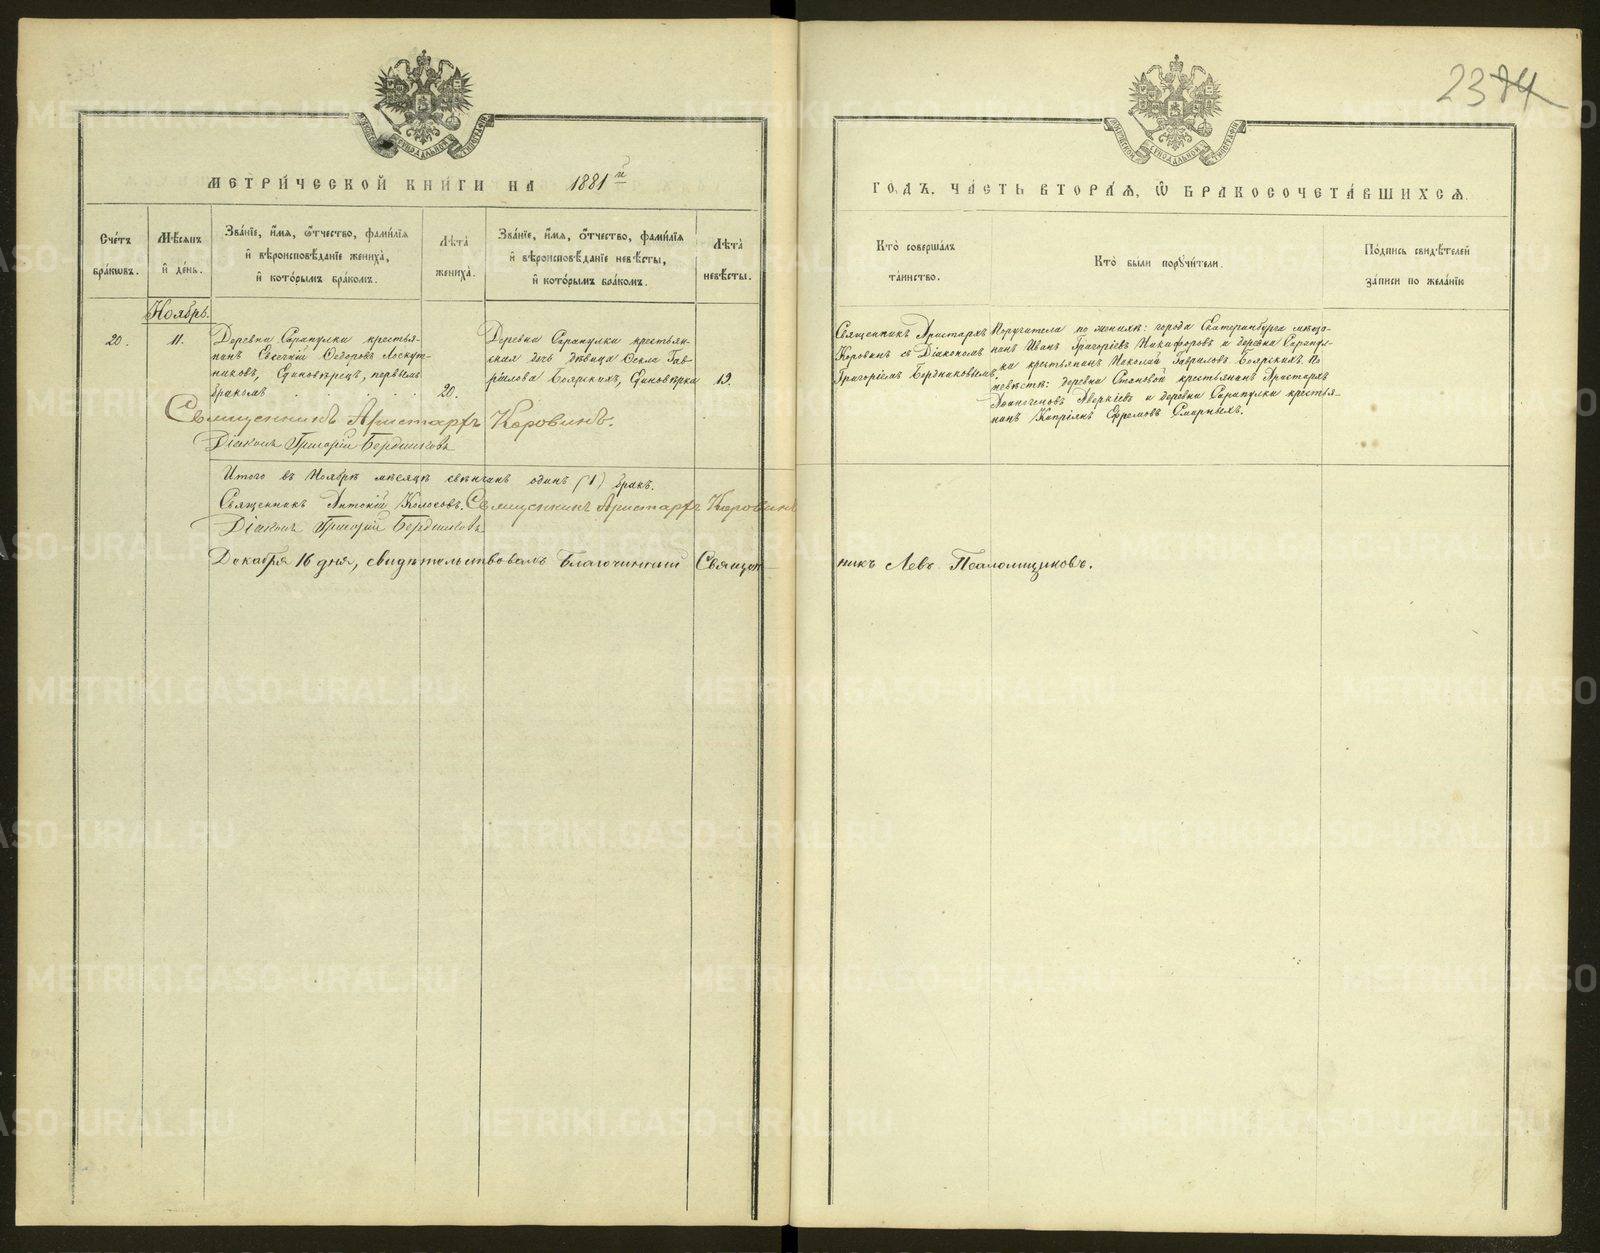 2374
МОСКОВСКОЙ СѴНОДАЛЬНОЙ ТИПОГРАФІИ
МОСКОВСКОЙ СѴНОДАЛЬНОЙ ТИПОГРАФІИ
МЕТРИ́ЧЕСКОЙ КНИ́ГИ НА 1881й
ГОДЪ, ЧА́СТЬ ВТОРА́Я, Ѽ БРАКОСОЧЕТА́ВШИХСЯ.
Сче́тъ
бра́ковъ.
Мѣ́сяцъ
и҆ де́нь.
Зва́нїе, и҆́мя, о҆́тчество, фами́лїя
и҆ вѣроисповѣ́данїе жениха̀,
и҆ кото́рымъ бра́комъ.
Лѣ́та
жениха̀.
Зва́нїе, и҆́мя, о҆́тчество, фами́лїя
и҆ вѣроисповѣ́данїе невѣ́сты,
и҆ кото́рымъ бра́комъ.
Лѣ́та
невѣ́сты.
Кто̀ соверша́лъ
та́инство.
Кто̀ бы́ли порꙋчи́тели.
По́дпись свидѣ́телей
за́писи по жела́нїю
Ноябрь.
20.
11.
Деревни Сарапулки крестья-
нинъ Евсегній Ѳедоровъ Лоскут-
никовъ, Единовѣрецъ, первымъ
бракомъ
20.
Деревни Сарапулки крестьян-
ская дочь дѣвица Ѳекла Гав-
рилова Боярскихъ, Единовѣрка
19.
Священникъ Аристархъ
Коровинъ съ Діакономъ
Григоріемъ Бердниковымъ.
Поручители по женихѣ: города Екатеринбурга мѣща-
нинъ Иванъ Григоріевъ Никифоровъ и деревни Сарапул-
ки крестьянинъ Николай Гавриловъ Боярскихъ. По
невѣстѣ: деревни Становой крестьянинъ Аристархъ
Аѳиногеновъ Аверкіевъ и деревни Сарапулки крестья-
нинъ Кипріянъ Ефремовъ Смирныхъ.
Священникъ Аристархъ Коровинъ.
Діаконъ Григорій Бердниковъ
Итого въ Ноябрѣ мѣсяцѣ свѣнчанъ одинъ (1) бракъ.
Священникъ Антоній Колосовъ. Священникъ Аристархъ Коровинъ
Діаконъ Григорій Бердниковъ
Декабря 16 дня, свидѣтельствовалъ Благочинный Священ-
никъ Левъ Псаломщиковъ.
METRIKI.GASO-URAL.RU